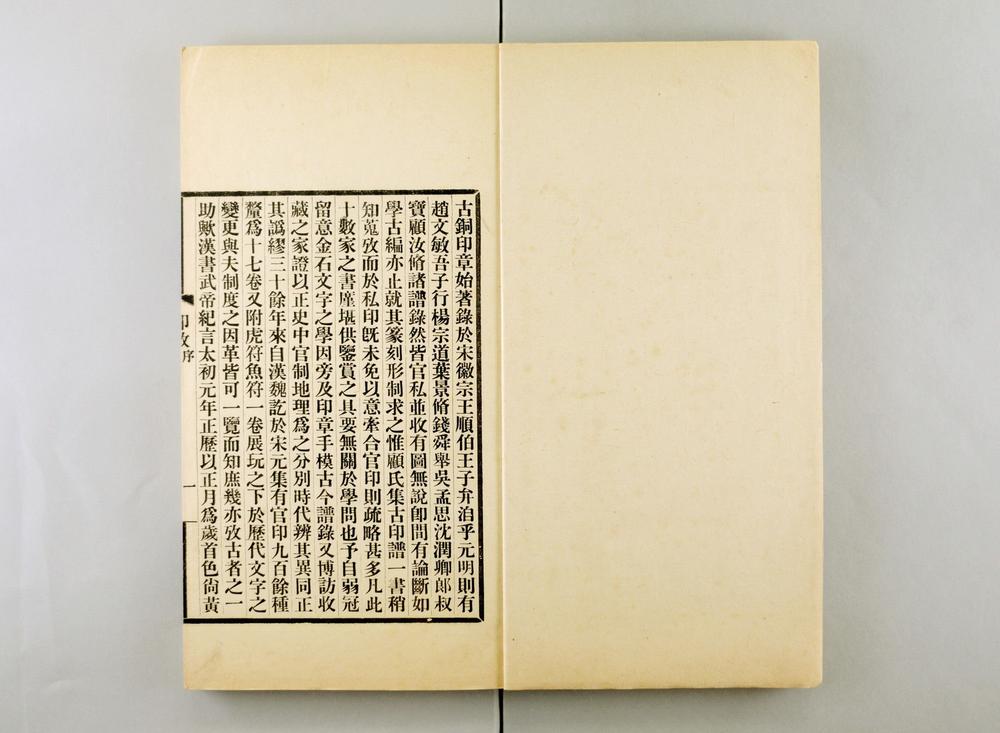 古銅印章始著錄於宋徽宗王順伯王子弁洎乎元明則有
趙文敏吾子行楊宗道葉景脩錢舜舉吳孟思沈潤卿郎叔
寶顧汝脩諸譜錄然皆官私並收有圖無說卽間有論斷如
學古編亦止就其篆刻形制求之惟顧氏集古印譜一書稍
知蒐攷而於私印旣未免以意牽合官印則疏略甚多凡此
十數家之書廑堪供鑒賞之具要無關於學問也予自弱冠
留意金石文字之學因旁及印章手模古今譜錄又博訪收
藏之家證以正史中官制地理爲之分別時代辨其異同正
其譌繆三十餘年來自漢魏訖於宋元集有官印九百餘種
釐爲十七卷又附虎符魚符一卷展玩之下於歷代文字之
變更與夫制度之因革皆可一覽而知庶幾亦攷古者之一
助歟漢書武帝紀言太初元年正歷以正月爲歲首色尙黃
印攷序
一